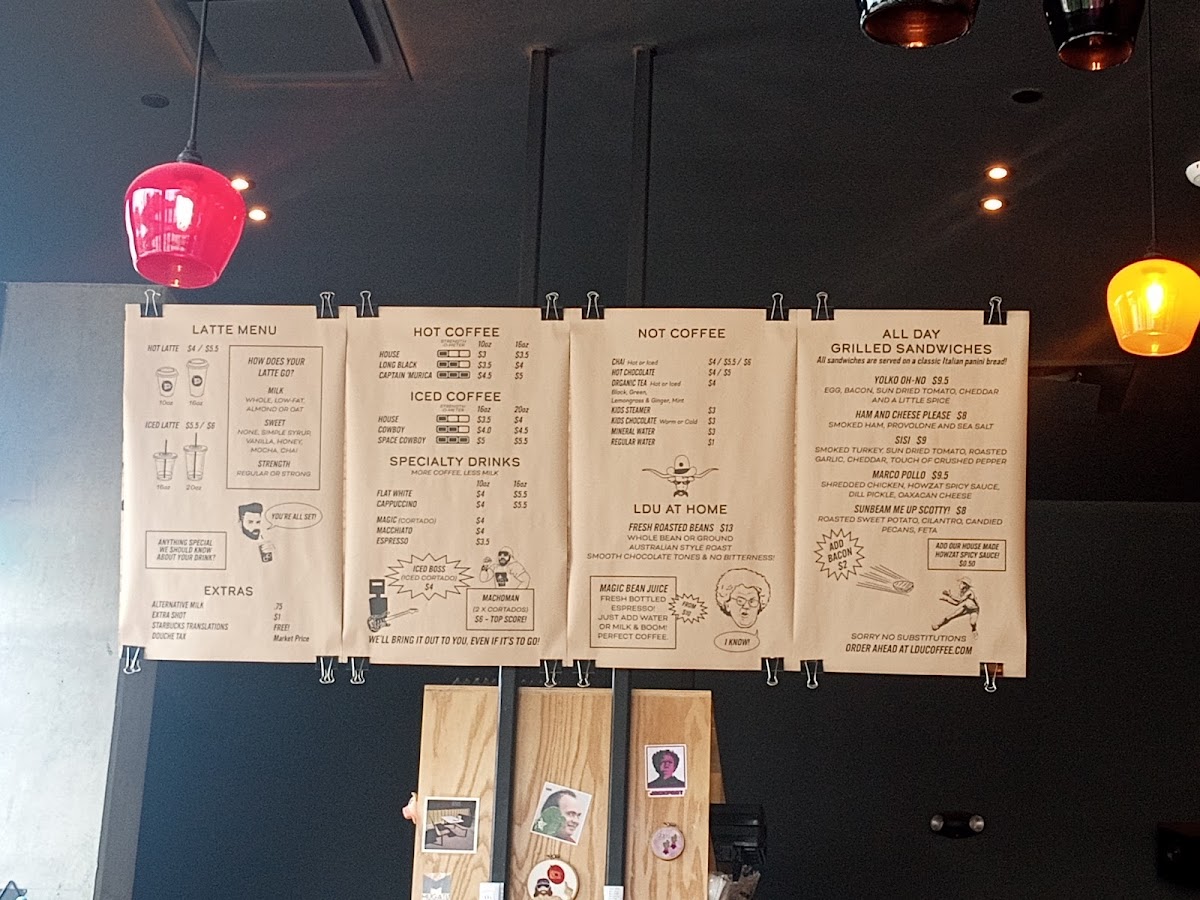 LATTE MENU
HOT LATTE $4 / $5.5
10oz 16oz
ICED LATTE $5.5 / $6
16oz 20oz
HOW DOES YOUR
LATTE GO?
MILK
WHOLE, LOW-FAT,
ALMOND OR OAT
SWEET
NONE, SIMPLE SYRUP,
VANILLA, HONEY,
MOCHA, CHAI
STRENGTH
REGULAR OR STRONG
YOU'RE ALL SET!
ANYTHING SPECIAL
WE SHOULD KNOW
ABOUT YOUR DRINK?
EXTRAS
ALTERNATIVE MILK .75
EXTRA SHOT $1
STARBUCKS TRANSLATIONS FREE!
DOUCHE TAX Market Price
HOT COFFEE
STRENGTH
O-METER 10oz 16oz
HOUSE $3 $3.5
LONG BLACK $3.5 $4
CAPTAIN 'MURICA $4.5 $5
ICED COFFEE
STRENGTH
O-METER 16oz 20oz
HOUSE $3.5 $4
COWBOY $4.0 $4.5
SPACE COWBOY $5 $5.5
SPECIALTY DRINKS
MORE COFFEE, LESS MILK
10oz 16oz
FLAT WHITE $4 $5.5
CAPPUCCINO $4 $5.5
MAGIC (CORTADO) $4
MACCHIATO $4
ESPRESSO $3.5
ICED BOSS
(ICED CORTADO)
$4
MACHOMAN
(2 X CORTADOS)
$6 – TOP SCORE!
WE'LL BRING IT OUT TO YOU, EVEN IF IT'S TO GO!
NOT COFFEE
CHAI Hot or Iced $4 / $5.5 / $6
HOT CHOCOLATE $4 / $5
ORGANIC TEA Hot or Iced $4
Black, Green,
Lemongrass & Ginger, Mint
KIDS STEAMER $3
KIDS CHOCOLATE Warm or Cold $3
MINERAL WATER $3
REGULAR WATER $1
LDU AT HOME
FRESH ROASTED BEANS $13
WHOLE BEAN OR GROUND
AUSTRALIAN STYLE ROAST
SMOOTH CHOCOLATE TONES & NO BITTERNESS!
MAGIC BEAN JUICE
FRESH BOTTLED
ESPRESSO!
JUST ADD WATER
OR MILK & BOOM!
PERFECT COFFEE.
FROM
$12
I KNOW!
ALL DAY
GRILLED SANDWICHES
All sandwiches are served on a classic Italian panini bread!
YOLKO OH-NO $9.5
EGG, BACON, SUN DRIED TOMATO, CHEDDAR
AND A LITTLE SPICE
HAM AND CHEESE PLEASE $8
SMOKED HAM, PROVOLONE AND SEA SALT
SISI $9
SMOKED TURKEY, SUN DRIED TOMATO, ROASTED
GARLIC, CHEDDAR, TOUCH OF CRUSHED PEPPER
MARCO POLLO $9.5
SHREDDED CHICKEN, HOWZAT SPICY SAUCE,
DILL PICKLE, OAXACAN CHEESE
SUNBEAM ME UP SCOTTY! $8
ROASTED SWEET POTATO, CILANTRO, CANDIED
PECANS, FETA
ADD
BACON
$2
ADD OUR HOUSE MADE
HOWZAT SPICY SAUCE!
$0.50
SORRY NO SUBSTITUTIONS
ORDER AHEAD AT LDUCOFFEE.COM